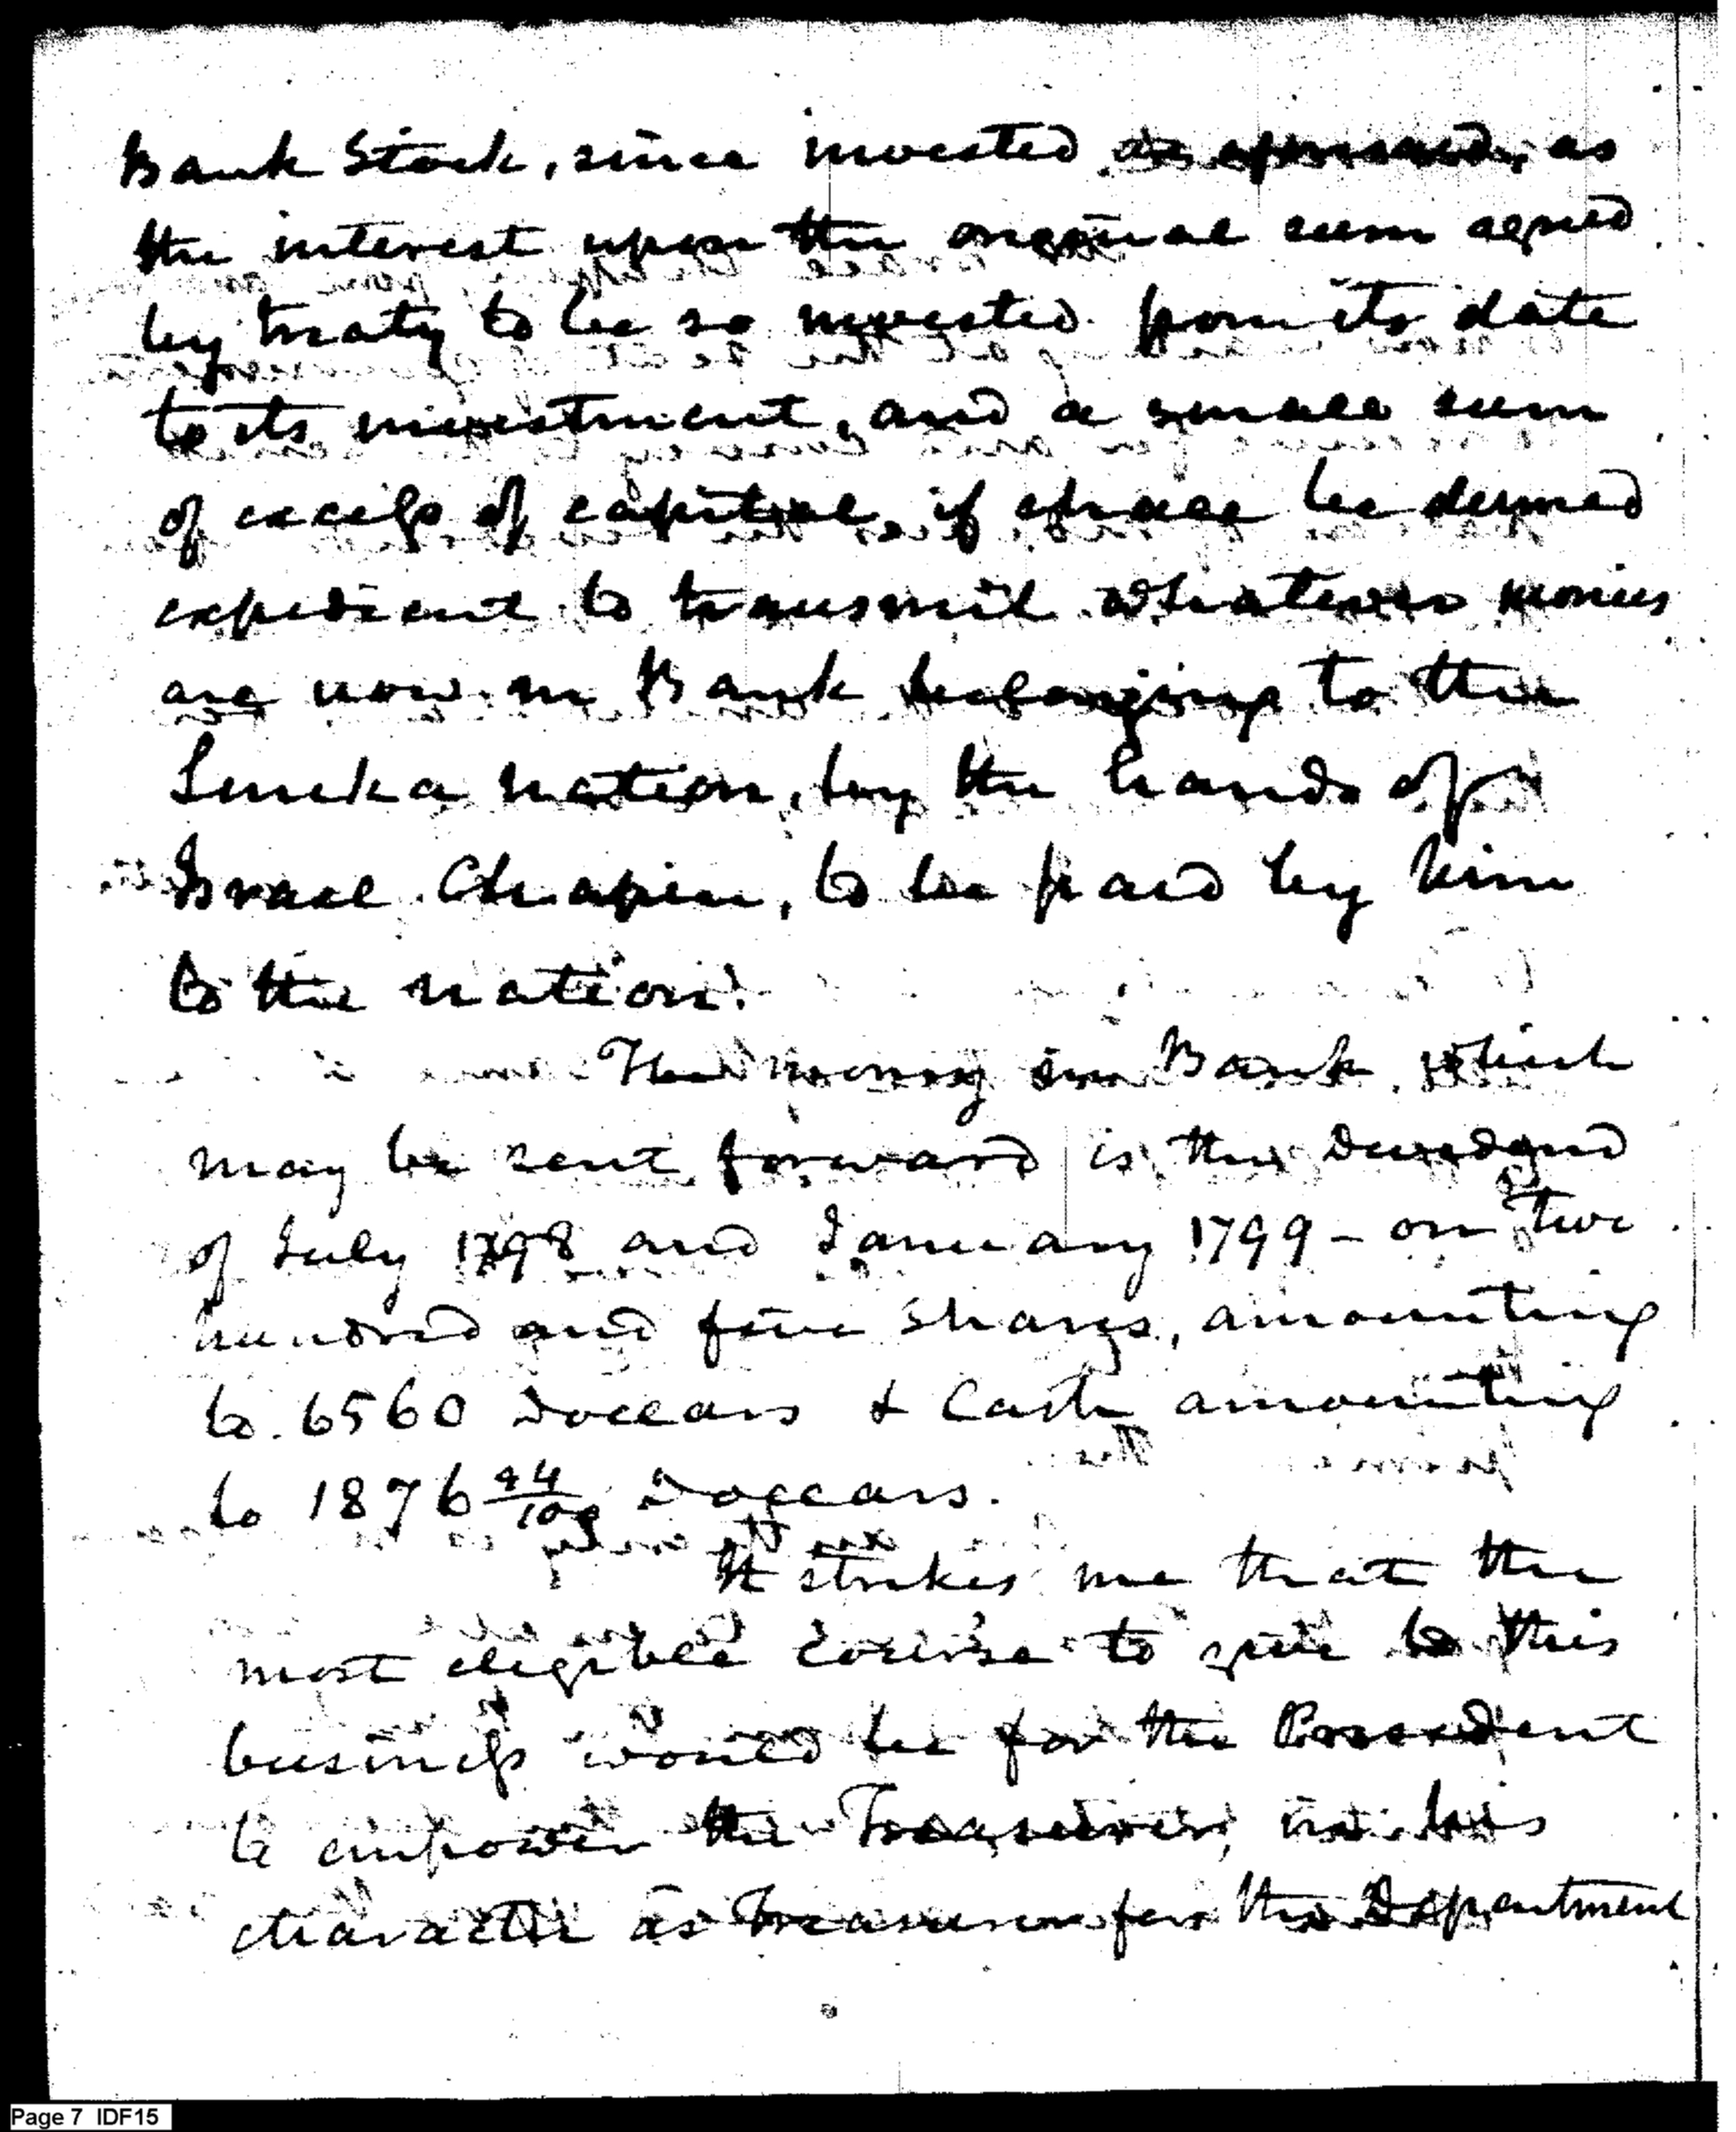 Bank Stock, since invested as aforesaid, as
the interest upon the original sum agreed
by treaty to be so invested from its date
to its investment, and a small sum
of excess of capital, if it shall be deemed
expedient to transmit whatever monies
are now in Bank belonging to the
Seneka nation, by the hands of
Israel Chapin, to be paid by him
to the nation.
The money in Bank which
may be sent forward is the Dividend
of July 1798 and January 1799 - on two
hundred and five Shares, amounting
to 6560 Dollars & Cash amounting
to 1876 44/100 Dollars.
It strikes me that the
most eligible course to give to this
business would be for the President
to empower the Treasurer, in his
character as Treasurer for the Department
Page 7 IDF15